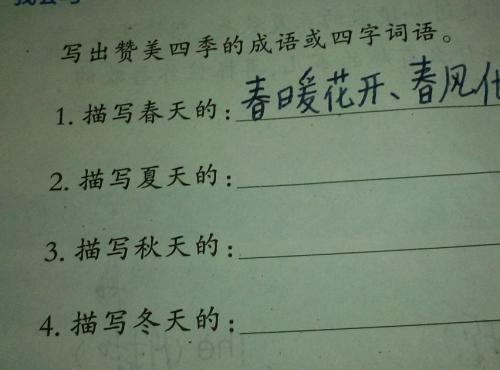 写出赞美四季的成语或四字词语。
1. 描写春天的：春日暖花开、春风
2. 描写夏天的：
3. 描写秋天的：
4. 描写冬天的：